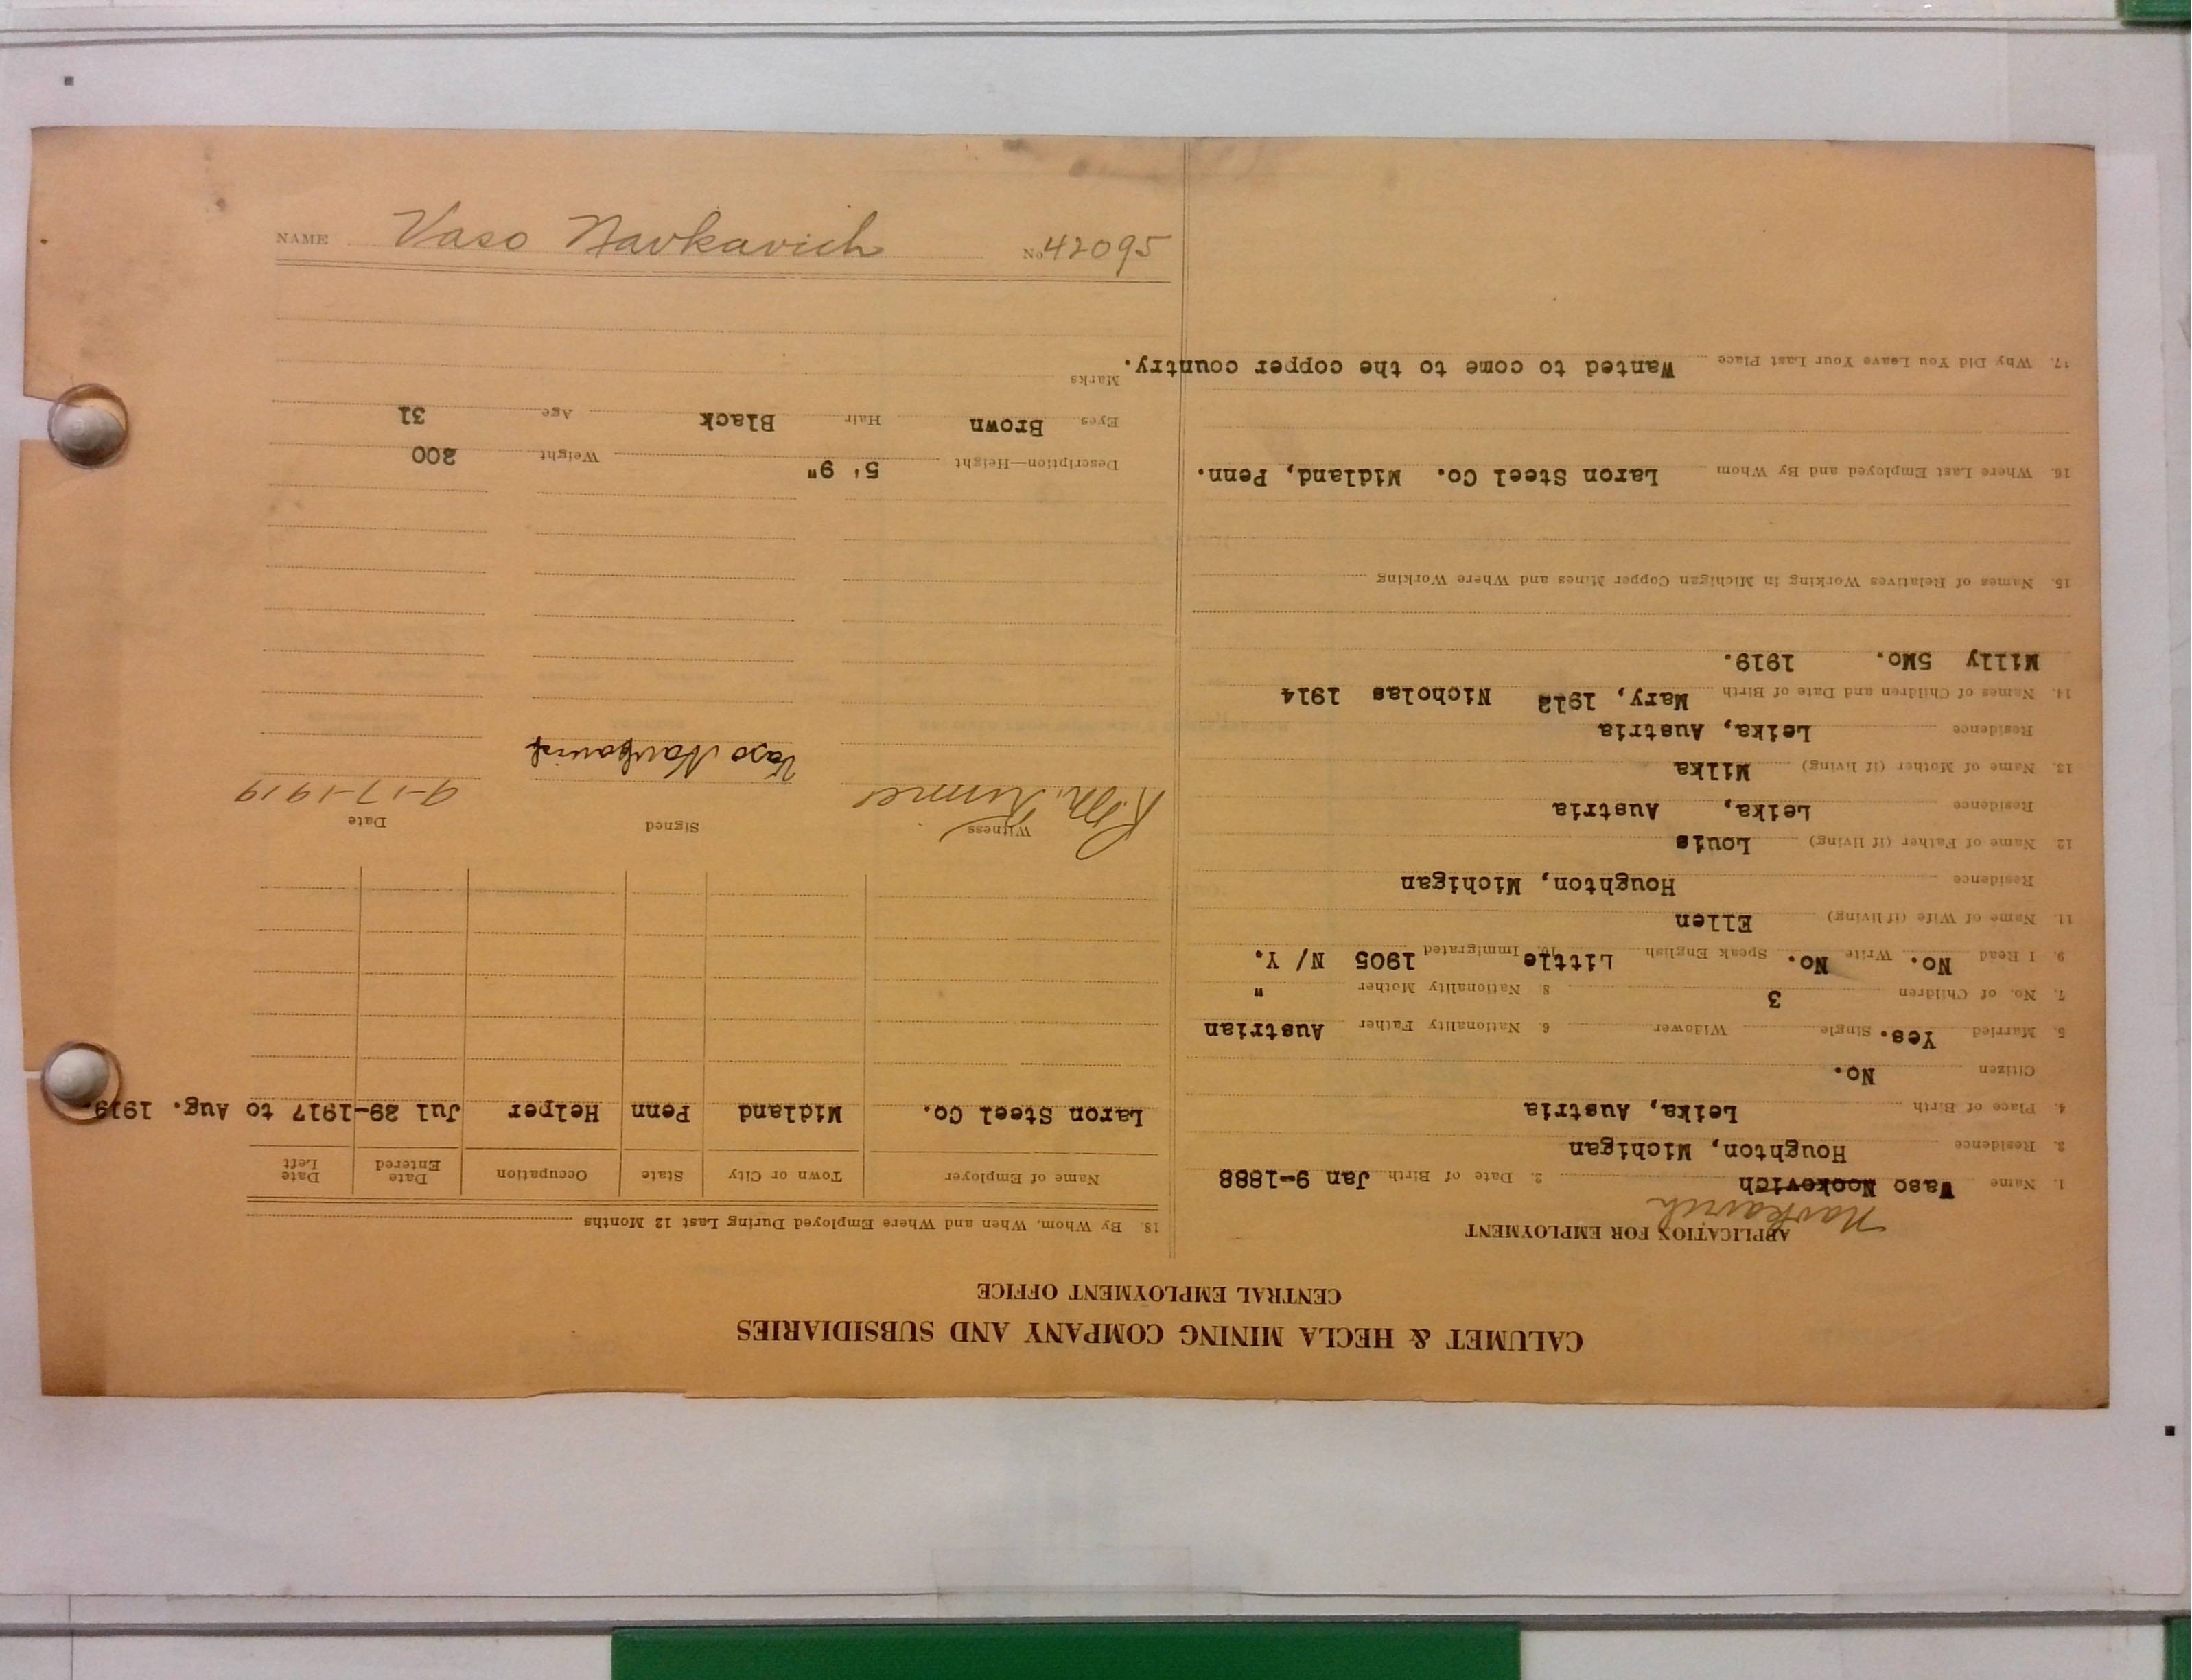 CALUMET & HECLA MINING COMPANY AND SUBSIDIARIES
CENTRAL EMPLOYMENT OFFICE
APPLICATION FOR EMPLOYMENT
Navkavich
1. Name Vaso Nookovich 2. Date of Birth Jan 9-1888
3. Residence Houghton, Michigan
4. Place of Birth Leika, Austria
Citizen No.
5. Married Yes. Single Widower 6. Nationality Father Austrian
7. No. of Children 3 8. Nationality Mother "
9. I Read No. Write No. Speak English Little 10. Immigrated 1905 N/ Y.
11. Name of Wife (if living) Ellen
Residence Houghton, Michigan
12. Name of Father (if living) Louis
Residence Leika, Austria
13. Name of Mother (if living) Milka
Residence Leika, Austria
14. Names of Children and Date of Birth Mary, 1912 Nicholas 1914
Milly 5Mo. 1919.
15. Names of Relatives Working in Michigan Copper Mines and Where Working
16. Where Last Employed and By Whom Laron Steel Co. Midland, Penn.
17. Why Did You Leave Your Last Place Wanted to come to the copper country.
18. By Whom, When and Where Employed During Last 12 Months
Name of Employer Town or City State Occupation Date Entered Date Left
Laron Steel Co. Midland Penn Helper Jul 29-1917 to Aug. 1919.
Witness Signed Date
R.M. Vaso Navkavich 9-17-1919
Description—Height 5' 9" Weight 200
Eyes Brown Hair Black Age 31
Marks
NAME Vaso Navkavich No. 42095